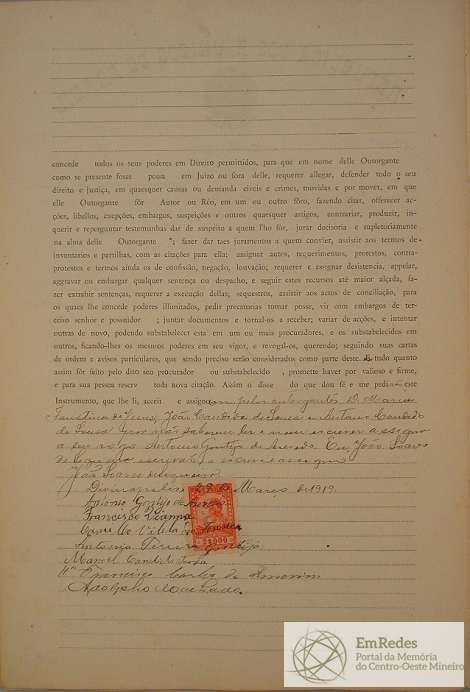 concede todos os seus poderes em Direito permittidos, para que em nome delle Outorgante
como se presente fosse possa em Juizo ou fóra delle, requerer allegar, defender todo o seu
direito e justiça, em quaesquer causas ou demanda civeis e crimes, movidas e por mover, em que
elle Outorgante fôr Autor ou Réo, em um ou outro fôro, fazendo citar, offerecer ac-
ções, libellos, exegções, embargos, suspeições e outros quarsquer artigos, contrariar, produzir, in-
querir e reperguntar testemunhas dar de suspeito a quem lho fôr, jurar decisoria e supletoriamente
na alma delle Outorgante ; fazer dar taes juramentos a quem convier, assistir aos termos de
inventarios e partilhas, com as citações para ella; assignar autos, requerimentos, protestos, contra-
protestos e termos ainda os de confissão, negação, louvação; requerer e assignar desistencia, appelar,
aggravar ou embargar qualquer sentença ou despacho, e seguir estes recursos até maior alçada, fa-
zer extrahir sentenças, requerer a execução dellas; sequestros, assistir aos actos de conciliação, para
os quaes lhe concede poderes illimitados, pedir precatorias tomar posse, vir com embargos de ter-
ceiro senhor e possuidor ; juntar documentos e tornal-os a receber; variar de acções, e intentar
outras de novo, podendo substabelecer esta em um ou mais procuradores, e os substabelecidos em
outros, ficando-lhes os mesmos poderes em seu vigor, e revogal-os, querendo; seguindo suas cartas
de ordem e avisos particulares, que sendo preciso serão considerados como parte deste. E tudo quanto
assim fôr feito pelo dito seu procurador ou substabelecido , promette haver por valioso e firme,
e para sua pessoa reserva toda nova citação. Assim o disse do que dou fé e me pedio este
Instrumento, que lhe li, acceit e assigna pelos outorgantes D. Maria
Faustina de Jesus, João Candido de Sousa e Antonio Candido
de Sousa, por não saberem ler e nem escrever a assigno
a seu rogo Antonio Gontijo de Azevedo. Eu, João Soares
João Soares
Divinopolis, 22 de Março de 1919.
Antonio Gontijo de
Francisco Vianna
Vilela da Fonseca
2$000
Antonio Pereira Gontijo
Manoel Candido
Francisco Carlos de Amorim
Adolpho Machado.
EmRedes
Portal da Memória
do Centro-Oeste Mineiro